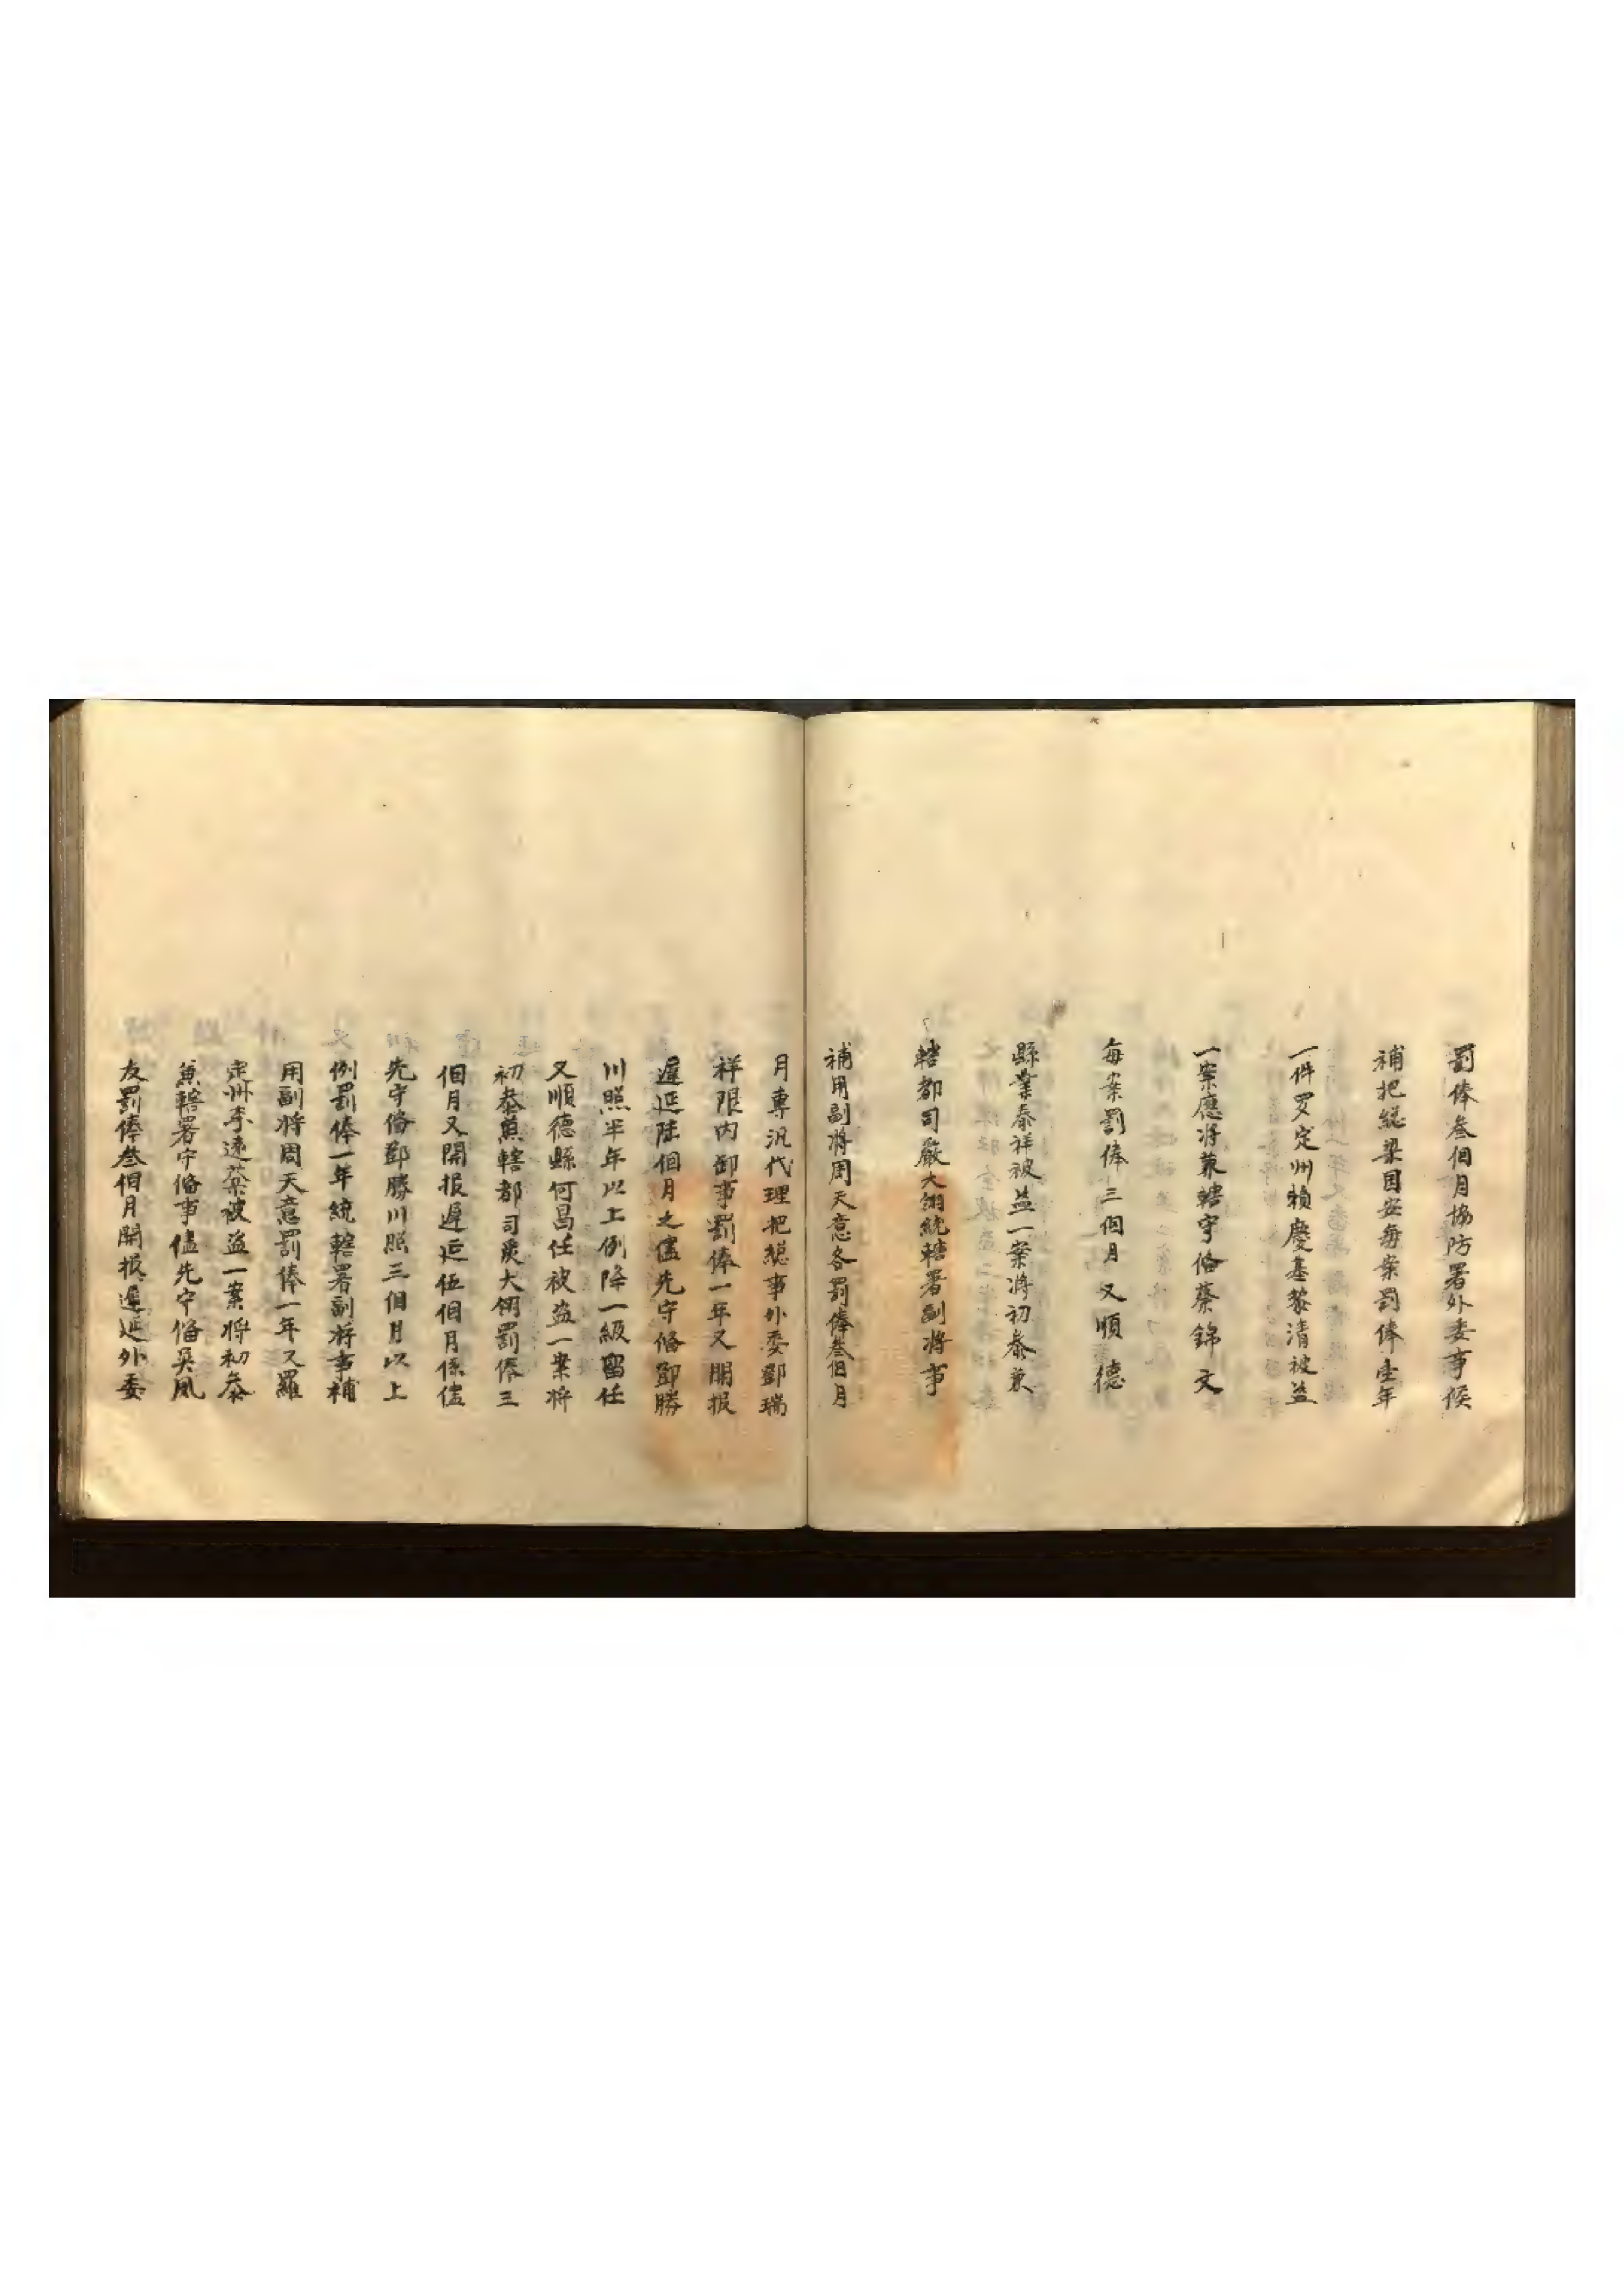 罰俸叁個月協防署外委事候
補把総梁国安每案罰俸壹年
一件罗定州賴慶基黎清被盗
一案應将兼轄守俻蔡錦文
每案罰俸三個月又順德
縣業泰祥被盗一案将初叅兼
轄都司嚴大翎統轄署副将事
補用副將周天意各罰俸叁佀月
月專汛代理把縂事外委鄧瑞
祥限内卸事罰俸一年又開报
遲延陸個月之儘先守俻鄧勝
川照半年以上例降一級留任
又順德縣何昌任被盗一案将
初叅兼轄都司嚴大翎罰俸三
佀月又開报遲延伍佀月係儘
先守俻鄧勝川照三佀月以上
例罰俸一年統轄署副将事補
用副将周天意罰俸一年又羅
定州李遠蒸被盗一案将初叅
兼轄署守俻事儘先守俻吳凤
友罰俸叁佀月開报遲延外委